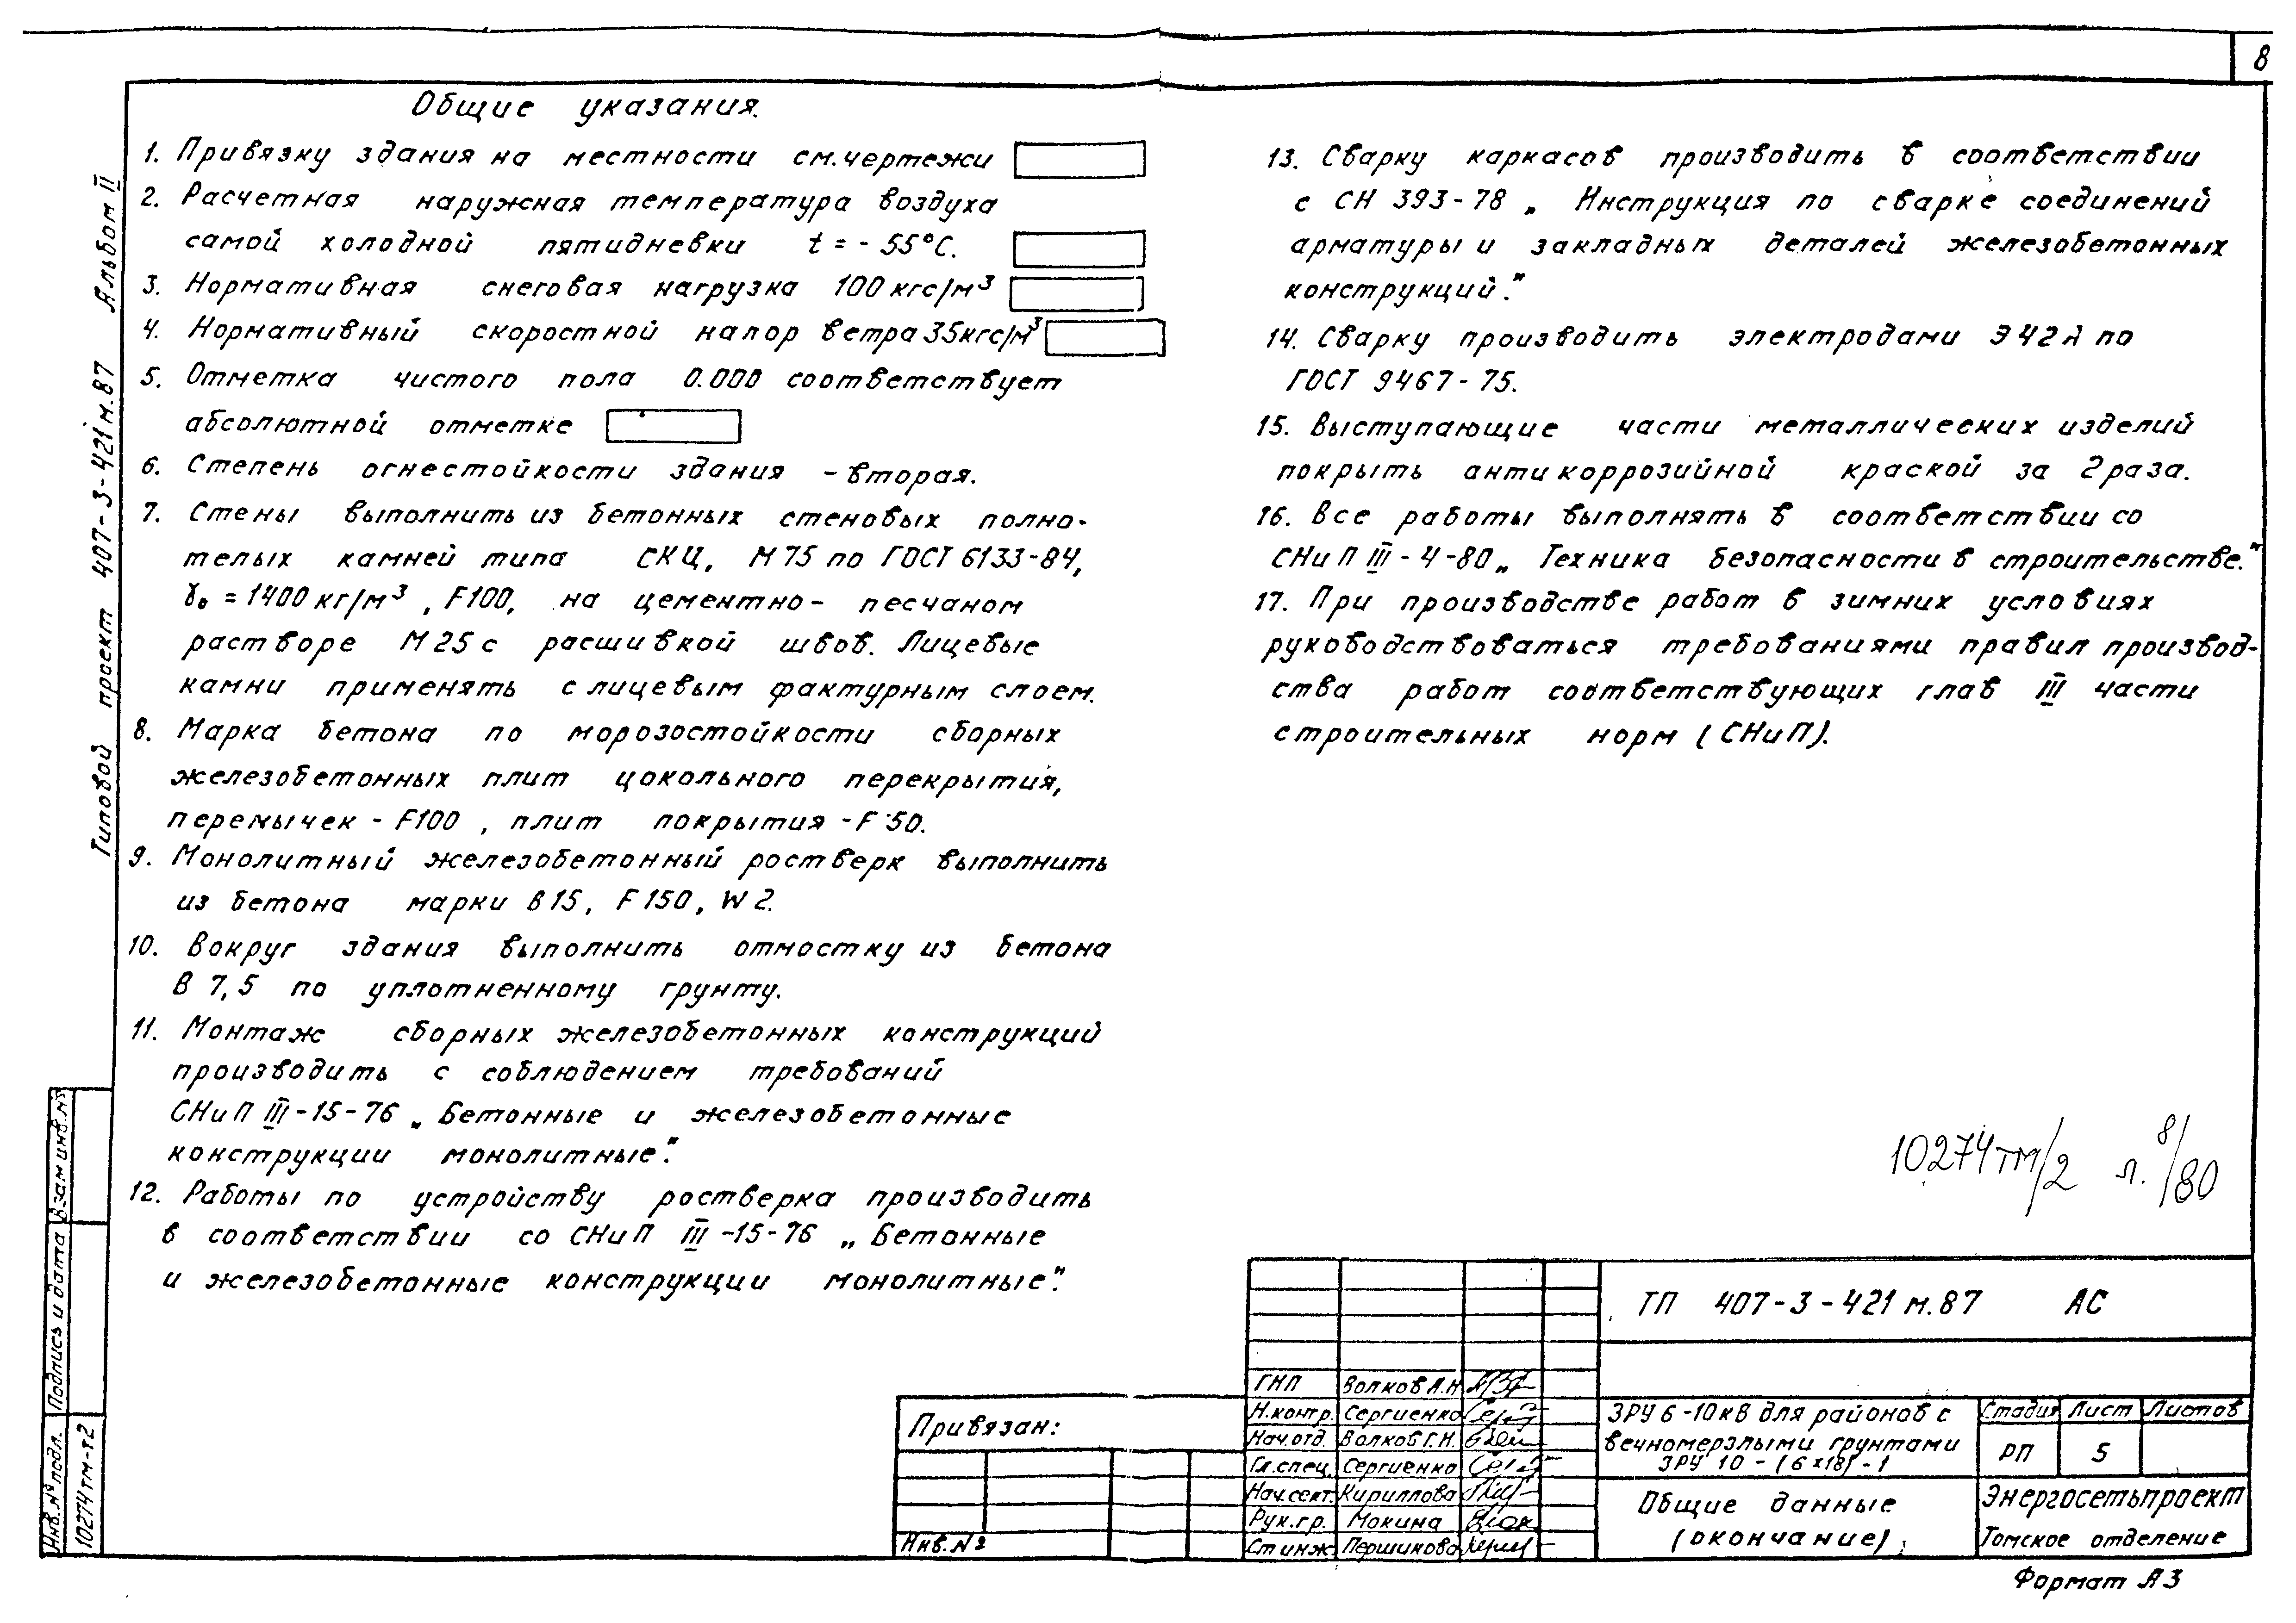 8
Общие указания.
1. Привязку здания на местности см. чертежи
2. Расчетная наружная температура воздуха
самой холодной пятидневки t = - 55°С.
3. Нормативная снеговая нагрузка 100 кгс/м³
4. Нормативный скоростной напор ветра 35кгс/м³
5. Отметка чистого пола 0.000 соответствует
абсолютной отметке
6. Степень огнестойкости здания - вторая.
7. Стены выполнить из бетонных стеновых полно-
телых камней типа СКЦ, М 75 по ГОСТ 6133-84,
γ₀ = 1400 кг/м³, F100, на цементно- песчаном
растворе М 25 с расшивкой швов. Лицевые
камни применять с лицевым фактурным слоем.
8. Марка бетона по морозостойкости сборных
железобетонных плит цокольного перекрытия,
перемычек - F100, плит покрытия - F 50.
9. Монолитный железобетонный ростверк выполнить
из бетона марки В15, F150, W2.
10. Вокруг здания выполнить отмостку из бетона
В 7,5 по уплотненному грунту.
11. Монтаж сборных железобетонных конструкций
производить с соблюдением требований
СНиП III-15-76 „Бетонные и железобетонные
конструкции монолитные".
12. Работы по устройству ростверка производить
в соответствии со СНиП III-15-76 „Бетонные
и железобетонные конструкции монолитные".
13. Сварку каркасов производить в соответствии
с СН 393-78 „Инструкция по сварке соединений
арматуры и закладных деталей железобетонных
конструкций."
14. Сварку производить электродами Э42А по
ГОСТ 9467-75.
15. Выступающие части металлических изделий
покрыть антикоррозийной краской за 2 раза.
16. Все работы выполнять в соответствии со
СНиП III-4-80 „Техника безопасности в строительстве."
17. При производстве работ в зимних условиях
руководствоваться требованиями правил производ-
ства работ соответствующих глав III части
строительных норм (СНиП).
Типовой проект 407-3-421м.87 Альбом II
Взам инв.№
Подпись и дата
Инв.№ подл.
10274тм-т2
10274тм/2 л. 8/80
ТП 407-3-421м.87 АС
Привязан:
Инв.№
ГИП Волков А.Н
Н.контр. Сергиенко
Нач.отд. Волков Г.Н.
Гл.спец. Сергиенко
Нач.сект. Кириллова
Рук.гр. Мокина
Ст инж. Першикова
ЗРУ 6-10кВ для районов с
вечномерзлыми грунтами
ЗРУ 10-(6х18)-1
Стадия Лист Листов
РП 5
Общие данные
(окончание)
Энергосетьпроект
Томское отделение
Формат А3